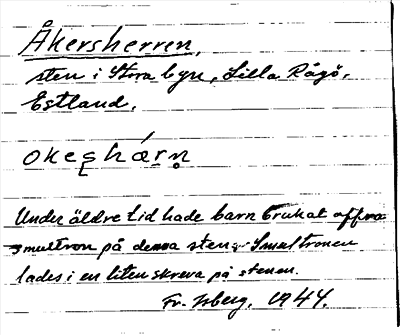 Åkersherren,
sten i Stora byn, Lilla Rågö,
Estland.
okeʂhárn̥
Under äldre tid hade barn brukat offra
smultron på denna sten. Smultronen
lades i en liten skreva på stenen.
Fr. Isberg, 1944.